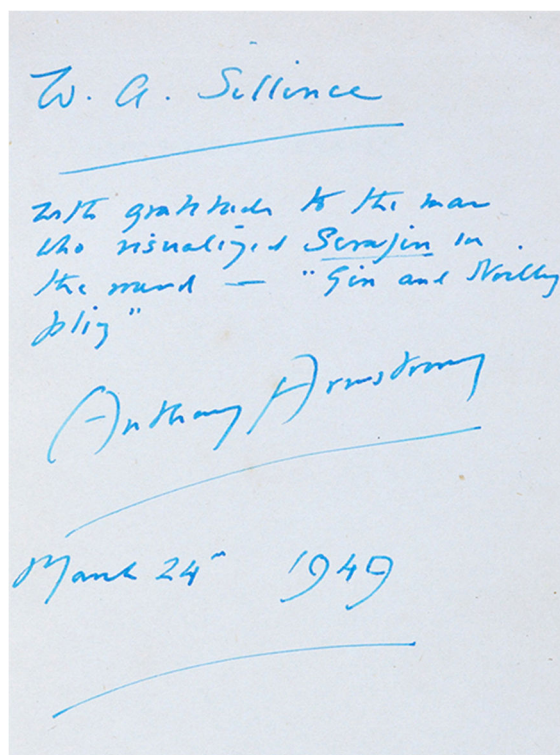 W. A. Sillince
with gratitude to the man
who visualized Serafin in
the mind — "Gin and Noilly
plis"
Anthony Armstrong
March 24th 1949